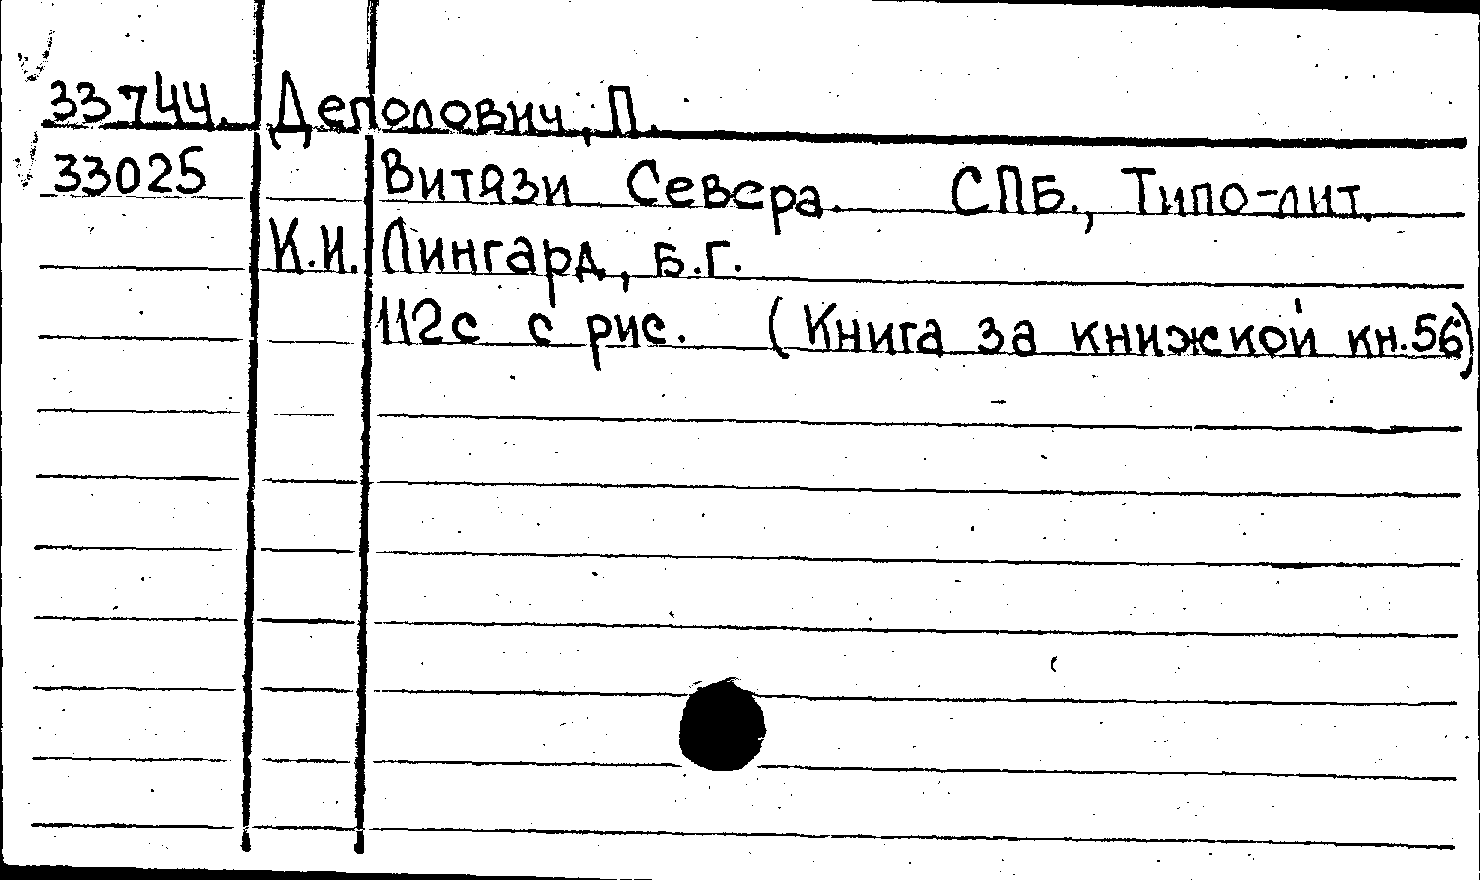 33744. Деполович, П.
33025 Витязи Севера. СПБ., Типо-лит.
К.И. Лингард, б.г.
112с с рис. (Книга за книжкой кн.56)